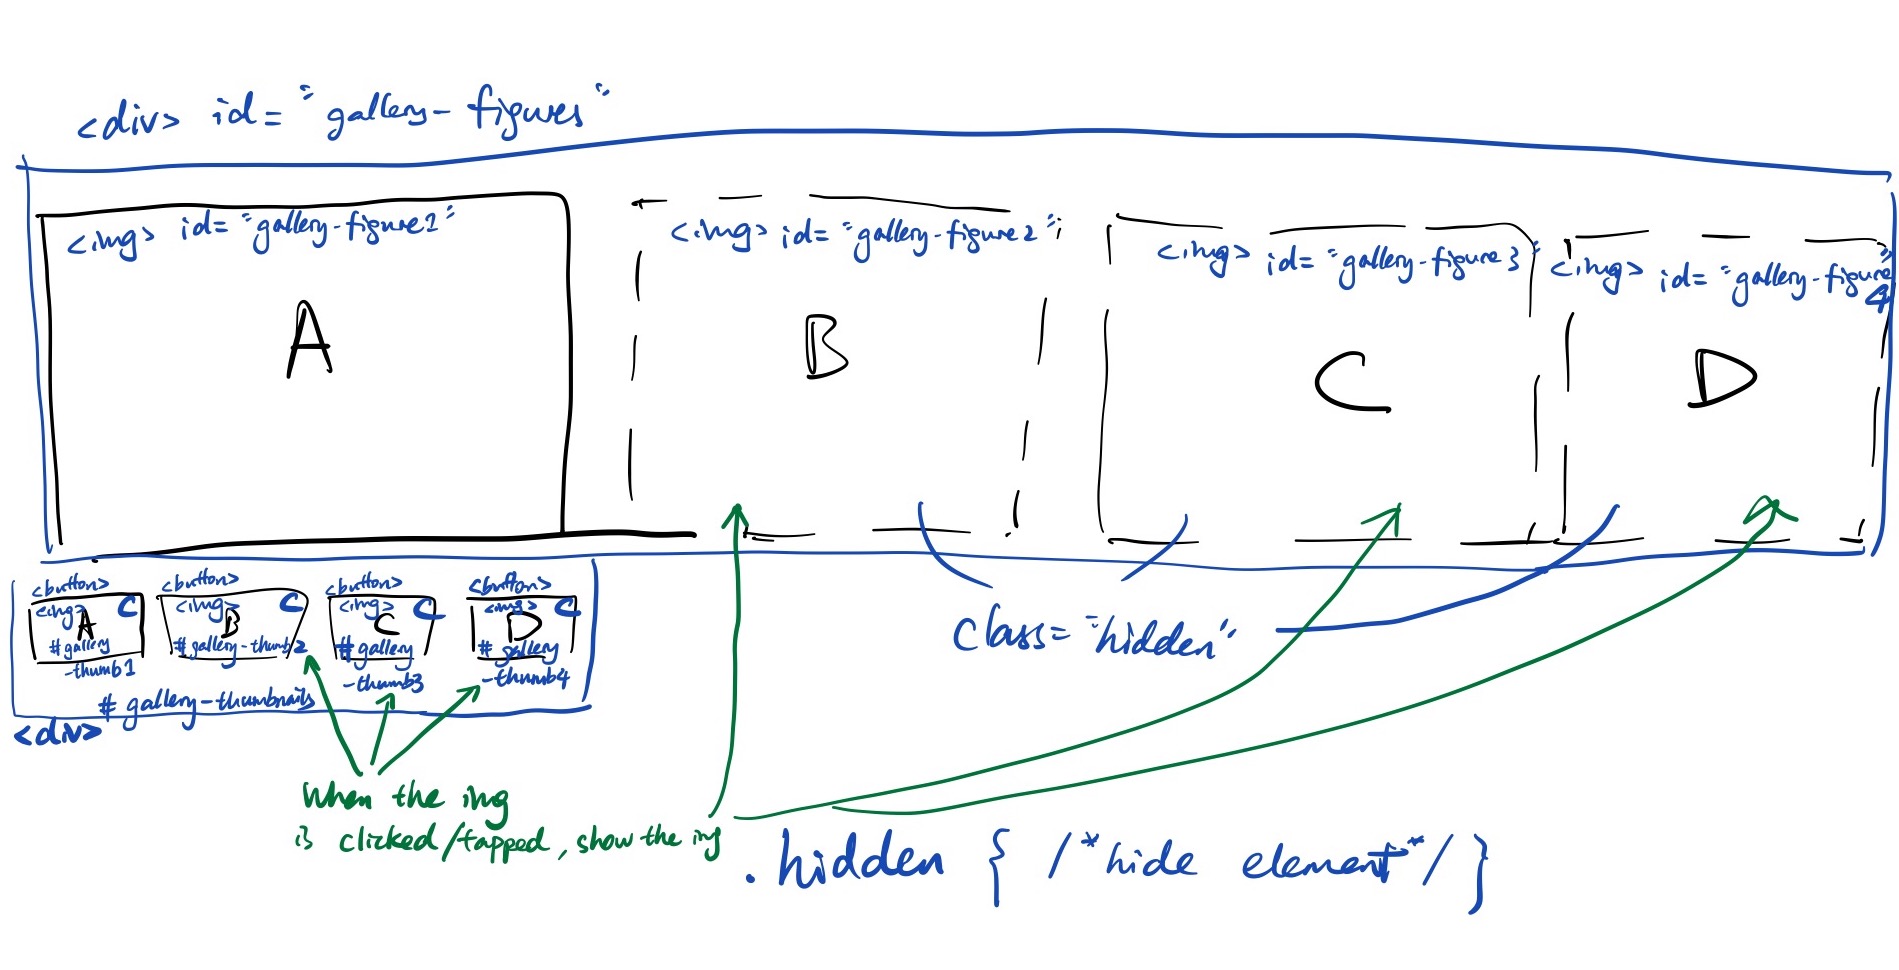 <div> id= "gallery-figures"
<img> id= "gallery-figure1"
A
<img> id= "gallery-figure2"
B
<img> id= "gallery-figure3"
C
<img> id= "gallery-figure4"
D
<button>
<img> C
A
#gallery
-thumb1
<button>
<img> C
B
#gallery-thumb2
<button>
<img> C
C
#gallery
-thumb3
<button>
<img> C
D
# gallery
-thumb4
# gallery-thumbnails
<div>
class= "hidden"
When the img
is clicked/tapped, show the img
.hidden { /*hide element*/ }